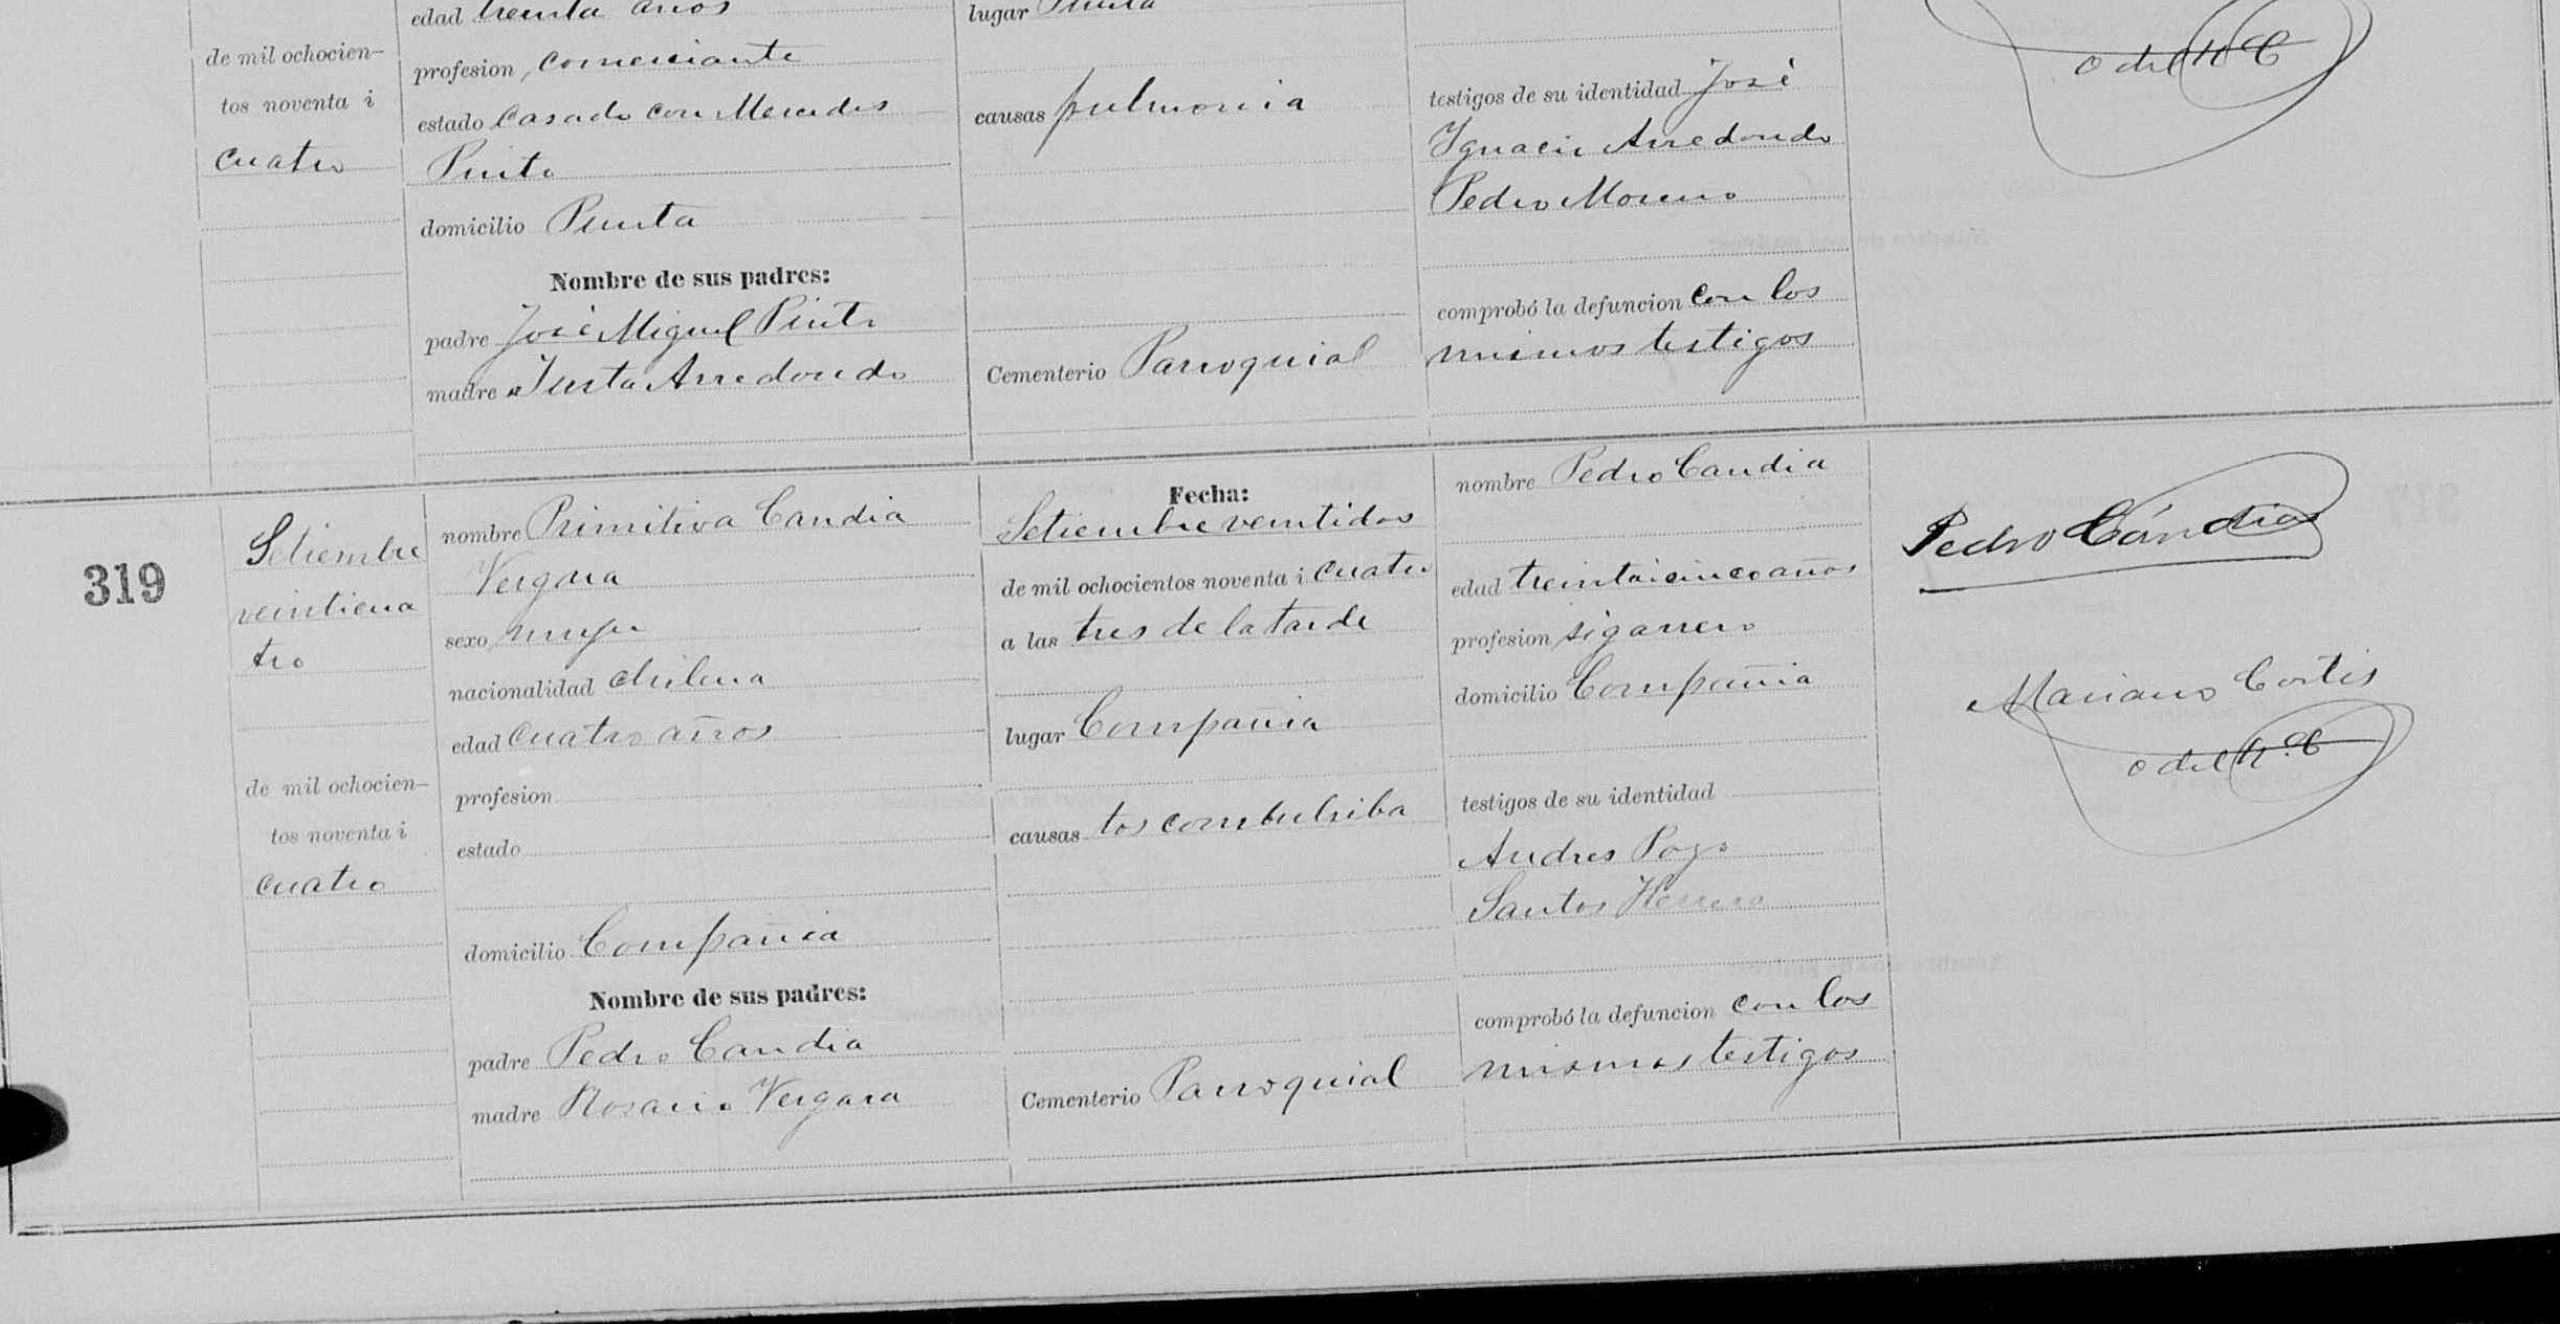 edad treinta años
de mil ochocien-
profesion comerciante
tos noventa i
estado casado con Mercedes
cuatro
Pinto
domicilio Punta
Nombre de sus padres:
padre José Miguel Pinto
madre Justa Arredondo
lugar Punta
causas pulmonia
Cementerio Parroquial
testigos de su identidad José
Ignacio Arredondo
Pedro Moreno
comprobó la defuncion con los
mismos testigos
o del R C
319
Setiembre
veinticua
tro
de mil ochocien-
tos noventa i
cuatro
nombre Primitiva Candia
Vergara
sexo mujer
nacionalidad chilena
edad cuatro años
profesion
estado
domicilio Compañia
Nombre de sus padres:
padre Pedro Candia
madre Rosario Vergara
Fecha:
Setiembre veintidos
de mil ochocientos noventa i cuatro
a las tres de la tarde
lugar Compañia
causas tos combulsiba
Cementerio Parroquial
nombre Pedro Candia
edad treintaicinco años
profesion sigarrero
domicilio Compañia
testigos de su identidad
Andres Pozo
Santos Herrera
comprobó la defuncion con los
mismos testigos
Pedro Cándia
Mariano Cortis
o del R C